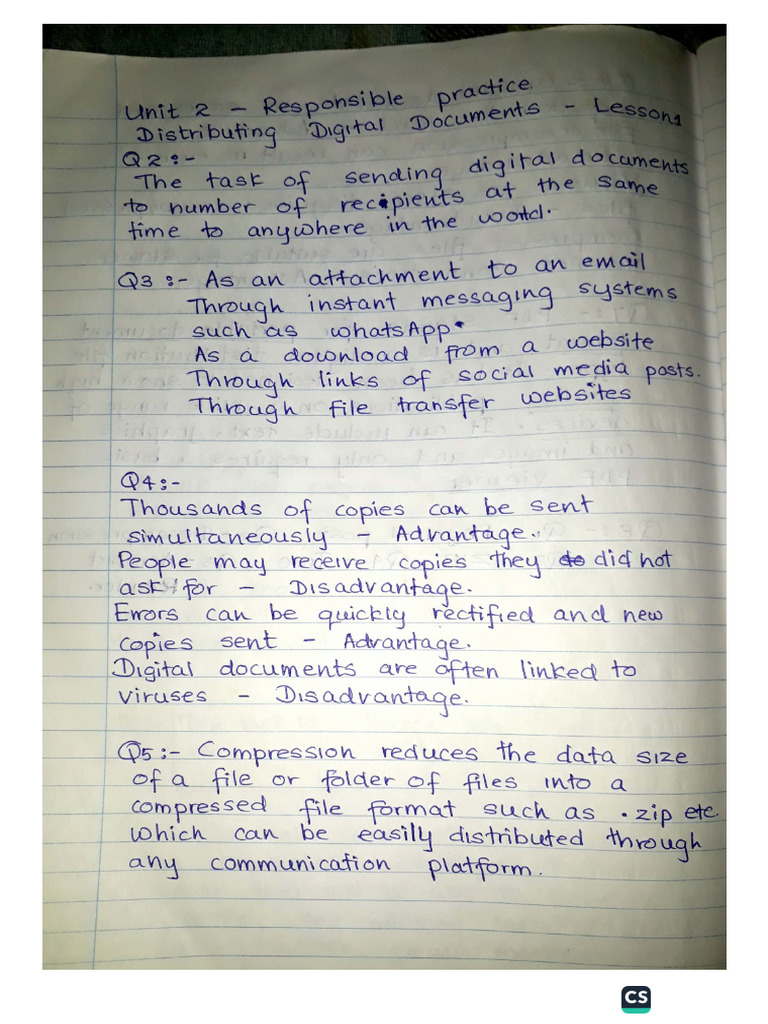 Unit 2 - Responsible practice
Distributing Digital Documents - Lesson 1
Q2:-
The task of sending digital documents
to number of recipients at the same
time to anywhere in the world.
Q3:- As an attachment to an email
Through instant messaging systems
such as whatsApp.
As a download from a website
Through links of social media posts.
Through file transfer websites
Q4:-
Thousands of copies can be sent
simultaneously - Advantage.
People may receive copies they did not
ask for - Disadvantage.
Errors can be quickly rectified and new
copies sent - Advantage.
Digital documents are often linked to
viruses - Disadvantage.
Q5:- Compression reduces the data size
of a file or folder of files into a
compressed file format such as .zip etc.
which can be easily distributed through
any communication platform.
CS